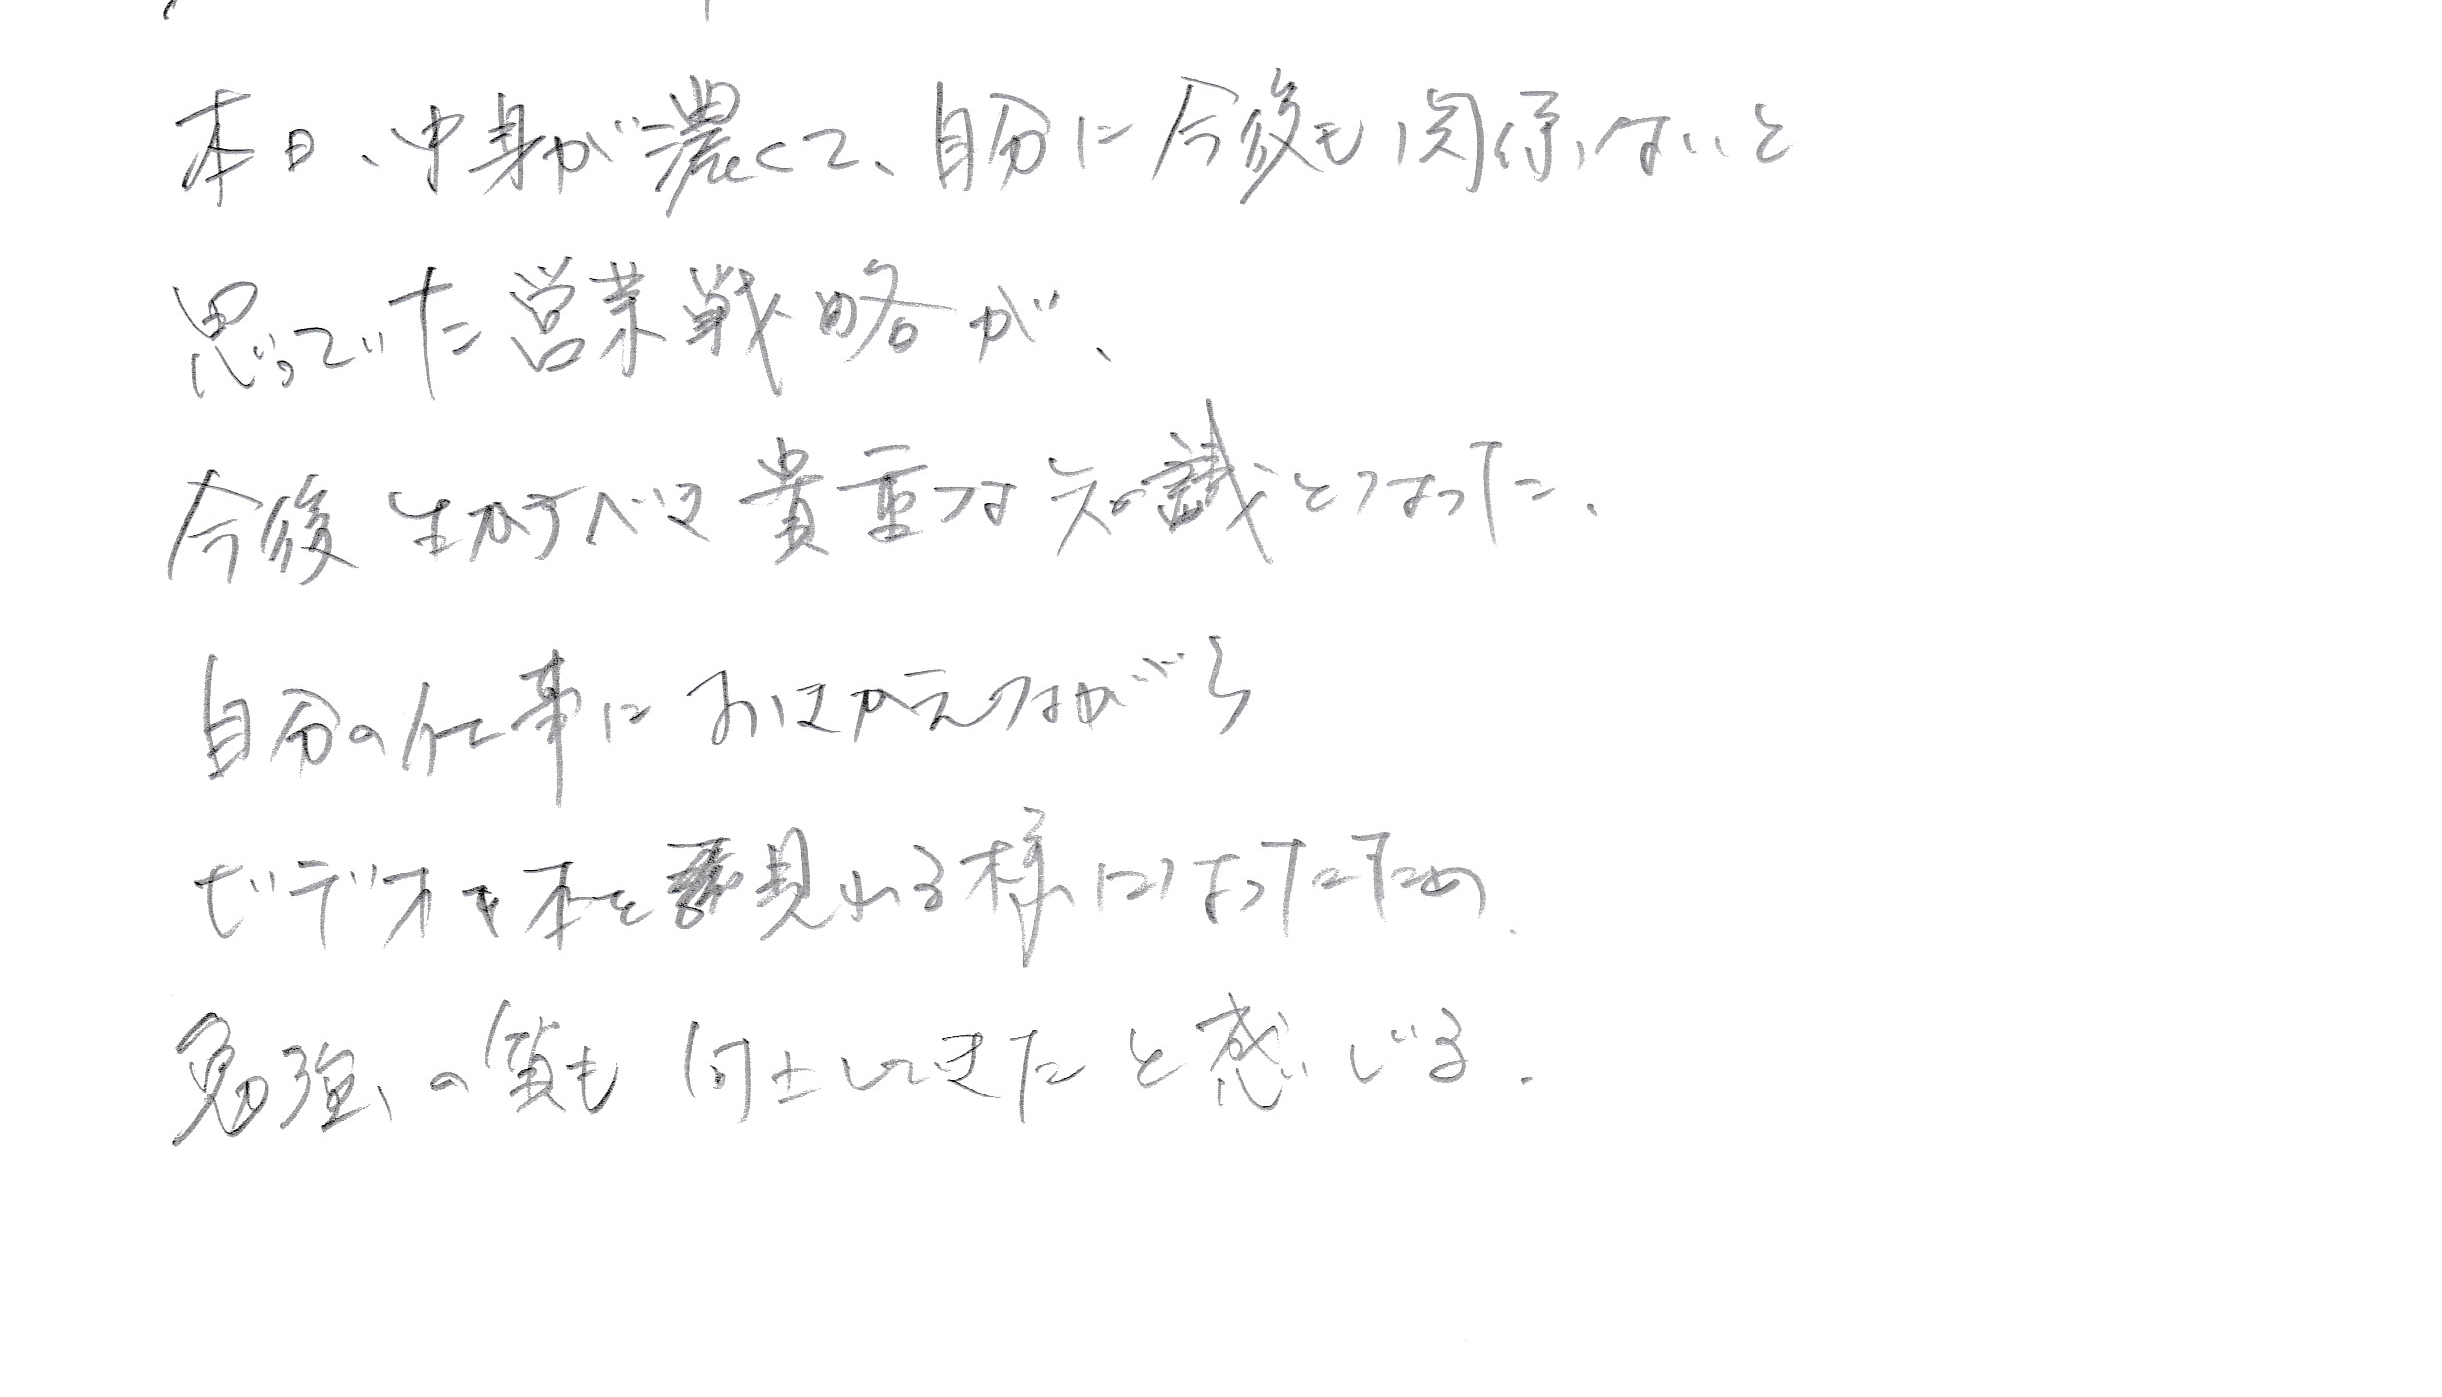 本日、中身が濃くて、自分に今後も関係ないと
思っていた営業戦略が、
今後生かすべき貴重な知識となった、
自分の仕事におきかえながら
ビデオや本を見れる様になったため、
勉強の質も向上してきたと感じる.